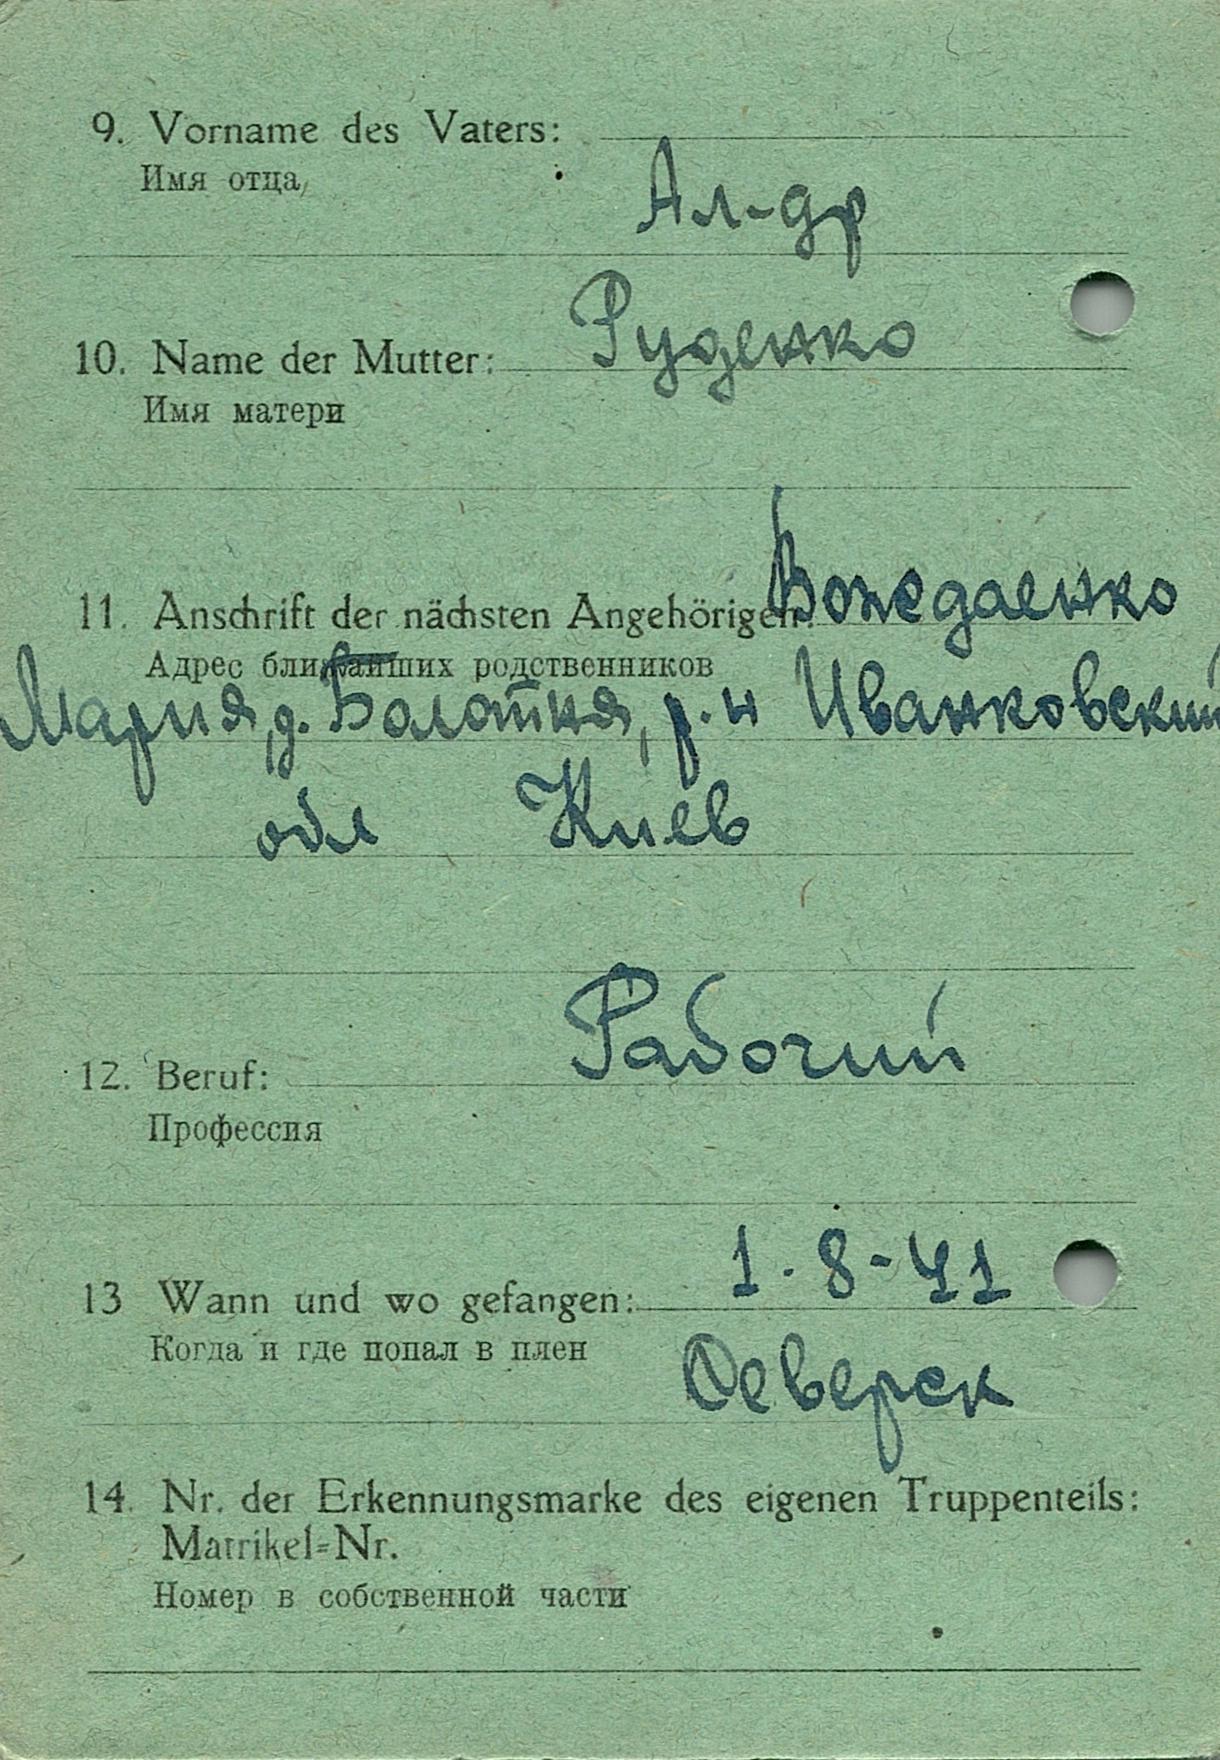 9. Vorname des Vaters:
Имя отца
Ал-др
Руденко
10. Name der Mutter:
Имя матери
11. Anschrift der nächsten Angehörigen:
Адрес ближайших родственников
Мария, д. Болотня, р.н Иванковский
обл Киев
Рабочий
12. Beruf:
Профессия
1-8-41
13 Wann und wo gefangen:
Когда и где попал в плен
Северск
14. Nr. der Erkennungsmarke des eigenen Truppenteils:
Matrikel=Nr.
Номер в собственной части